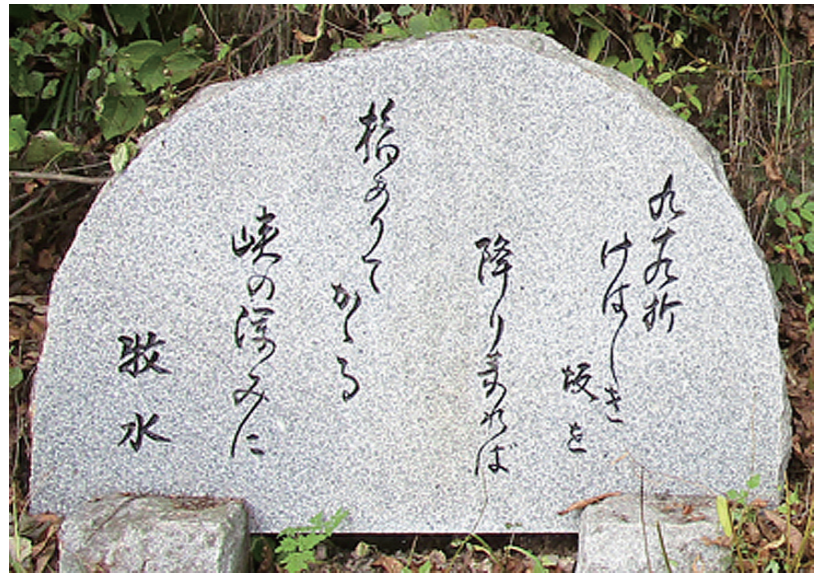 九十九折
けはしき
坂を
降り来れば
橋ありて
かゝる
峡の深みに
牧水